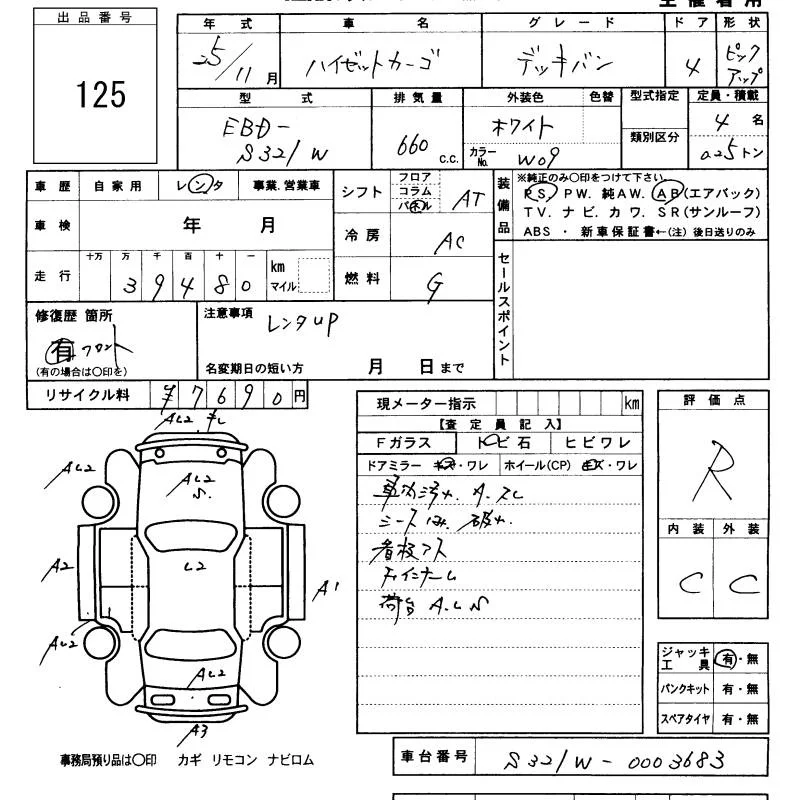 出品番号
125
年式 車名 グレード ドア 形状
25/11月 ハイゼットカーゴ デッキバン 4 ピック アップ
型式 排気量 外装色 色替 型式指定 定員・積載
EBD-
S321W 660 C.C. ホワイト 4名
カラーNo. W09 類別区分 0.25トン
車歴 自家用 レンタ 事業.営業車
シフト フロア コラム パネル AT
装備品 ※純正のみ〇印をつけて下さい。
PS. PW. 純AW. AB(エアバック)
TV. ナビ. カワ. SR(サンルーフ)
ABS ・ 新車保証書←(注) 後日送りのみ
車検 年 月
冷房 AC
走行 十万 万 千 百 十 一
39480 km マイル
燃料 G
セールスポイント
修復歴 箇所
有 フロント
(有の場合は〇印を)
注意事項
レンタUP
名変期日の短い方 月 日まで
リサイクル料 ¥7690円
現メーター指示 km
【査定員記入】
Fガラス トビ石 ヒビワレ
ドアミラー キズ・ワレ ホイール(CP) キズ・ワレ
車内汚れ
シート
看板アト
荷台 A.L.S
評価点
R
内装 外装
C C
ジャッキ
工具 有・無
パンクキット 有・無
スペアタイヤ 有・無
AL2
AL2
AL2
S.
A2
L2
A1
AL2
AL2
AL2
A3
事務局預り品は〇印 カギ リモコン ナビロム
車台番号 S321W-0003683